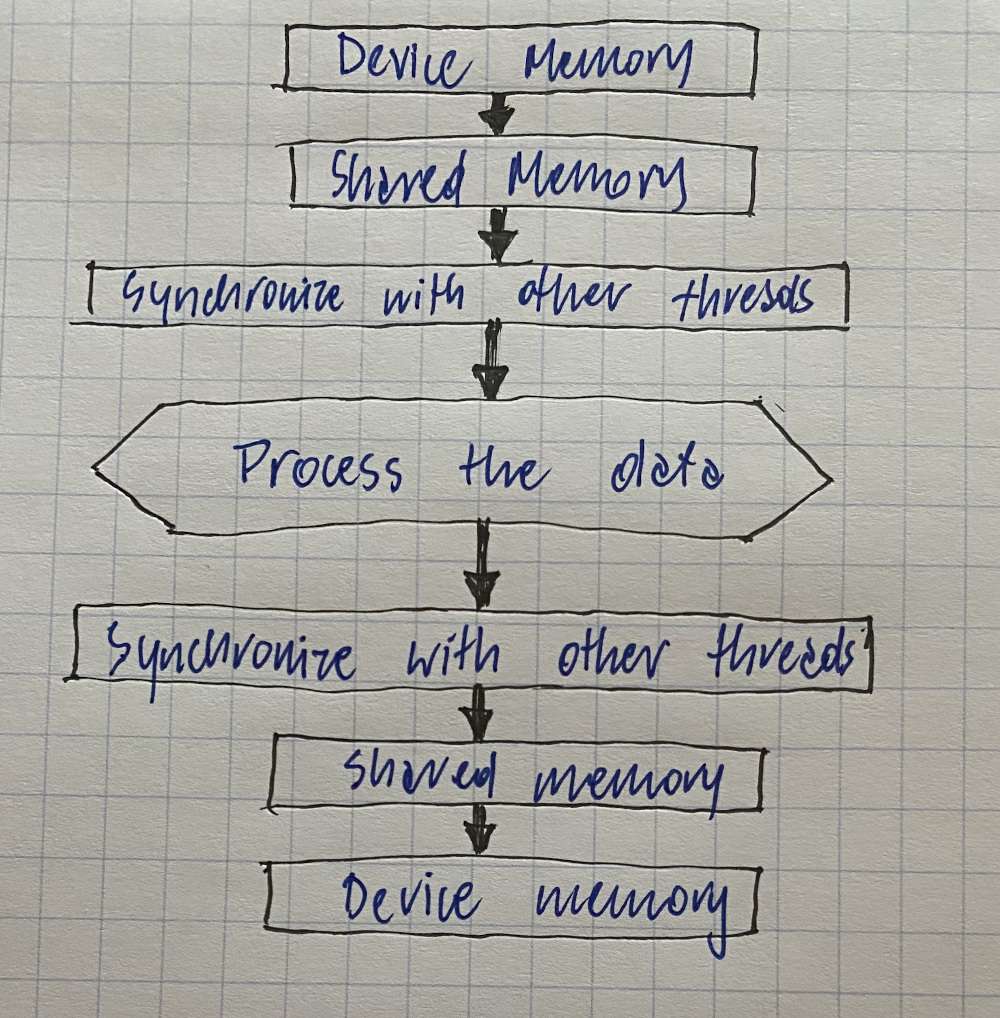 Device Memory
Shared Memory
Synchronize with other threads
Process the data
Synchronize with other threads
Shared memory
Device memory